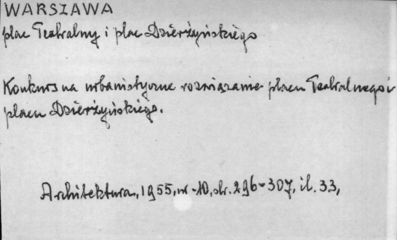 WARSZAWA
plac Teatralny i plac Dzierżyńskiego
Konkurs na urbanistyczne rozwiązanie placu Teatralnego i
placu Dzierżyńskiego.
Architektura, 1955, nr 10, str. 296-307, il. 33,